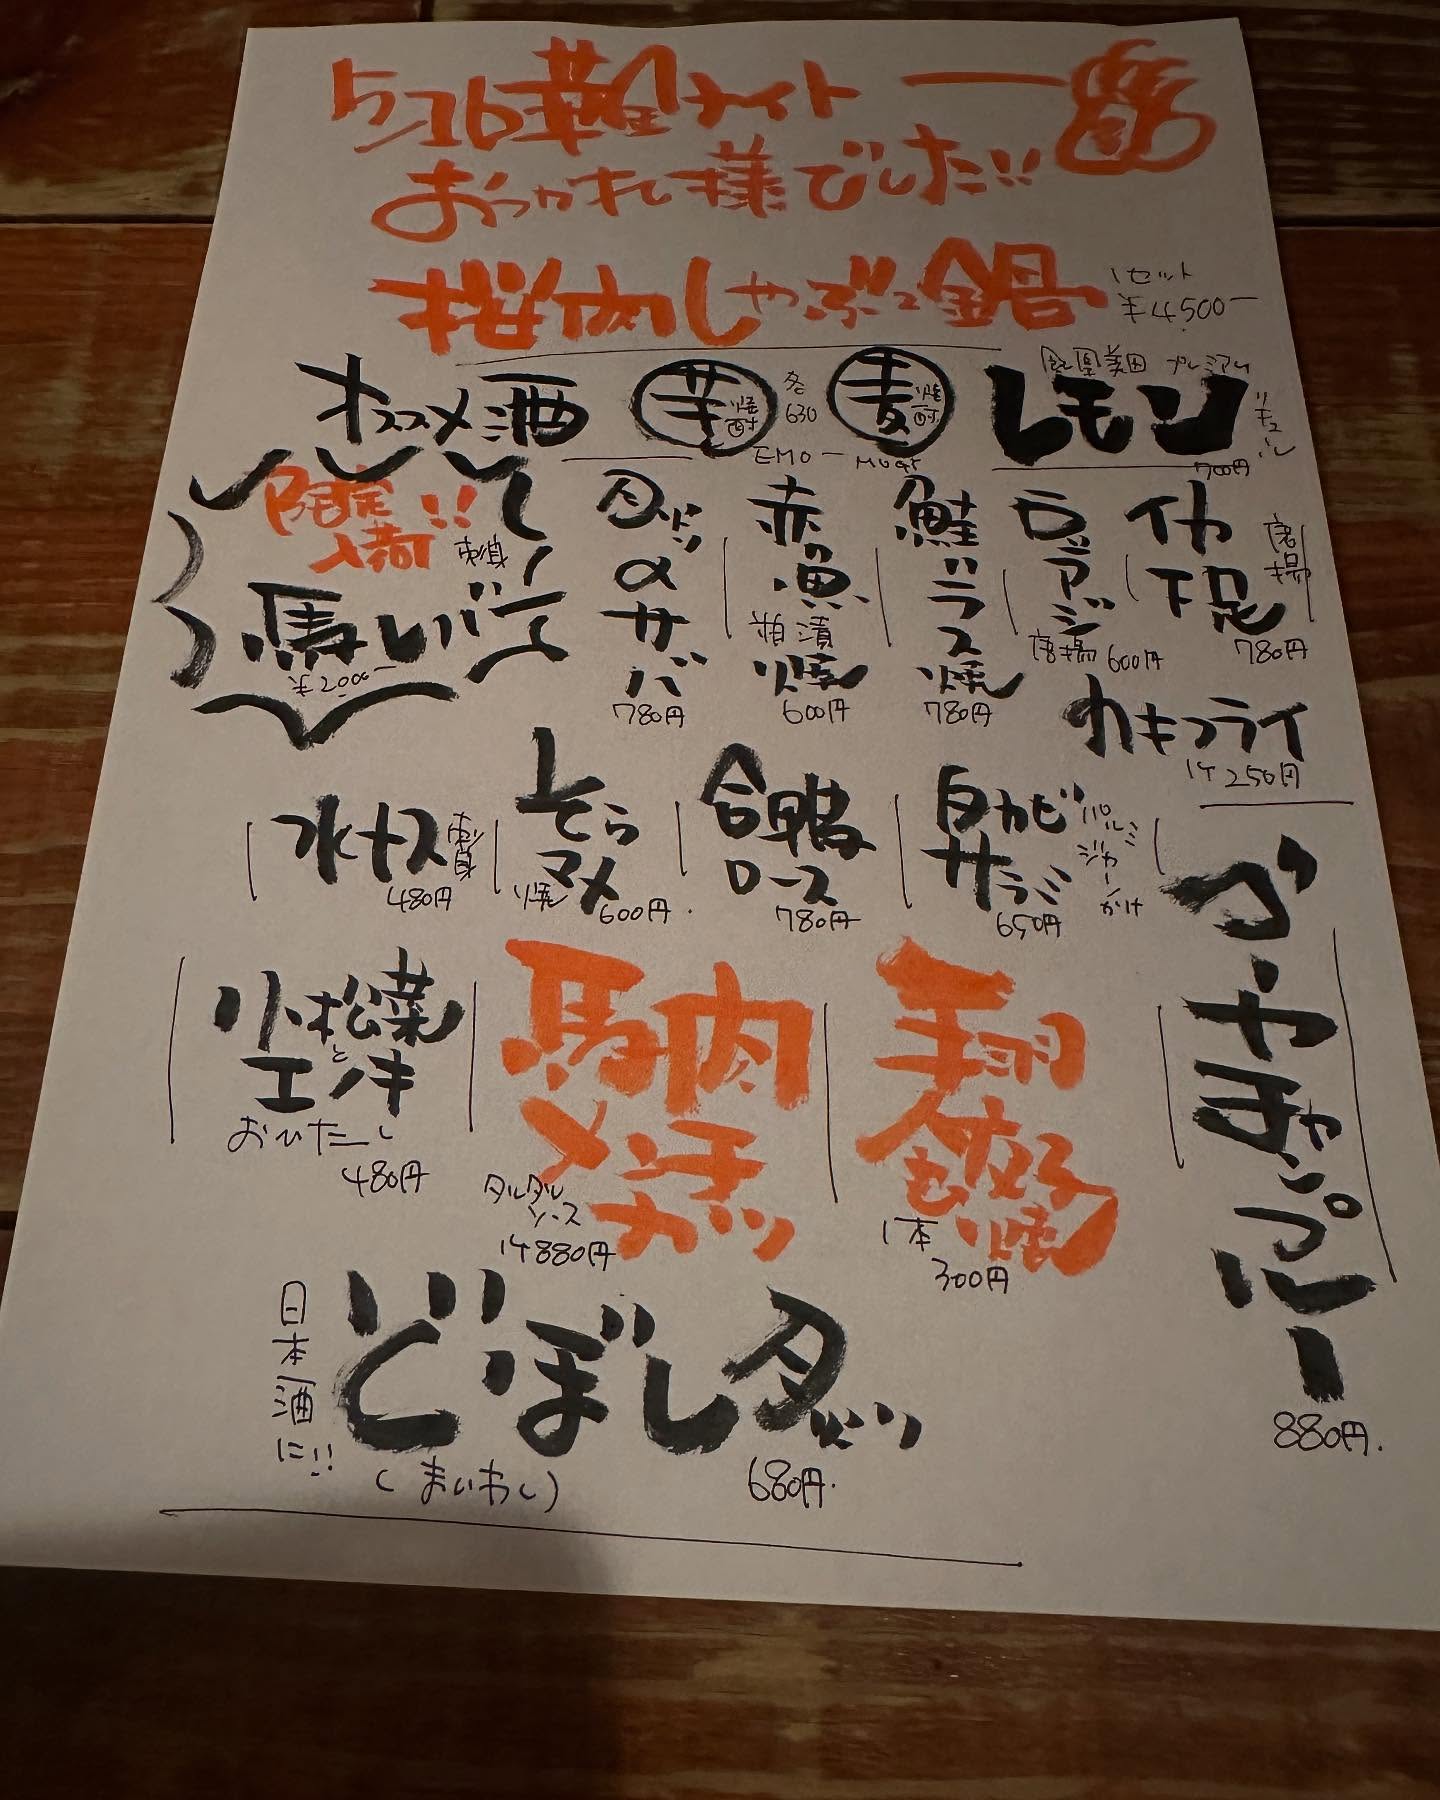 5/16 靴ナイト
おつかれ様でした!!
桜肉しゃぶつ鍋 1セット ¥4500ー
オススメ酒 芋焼酎 各630 麦焼酎 レモン プレミアム リキュール 700円
EMO ー MUGI
限定入荷!!
馬レバテー 刺身 ¥2000ー
タットンメサバ 780円
赤魚粕漬焼 600円
鮭ハラス焼 780円
豆アジ唐揚 600円
イカ下足唐揚 780円
カキフライ 1ケ250円
水ナス刺身 480円
そらマメ焼 600円
合鴨ロース 780円
白カビサラミ パルミジャーノかけ 650円
ゴーヤチャンプルー 880円.
小松菜とエノキ
おひたし 480円
馬肉メンチカツ タルタルソース 1ケ880円
1本 300円
日本酒に!!
どぼしダッツ
(まいわし) 680円.